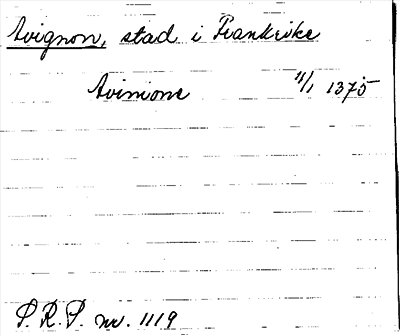 Avignon, stad i Frankrike
Avinione 11/1 1375
P.R.P. nr. 1119